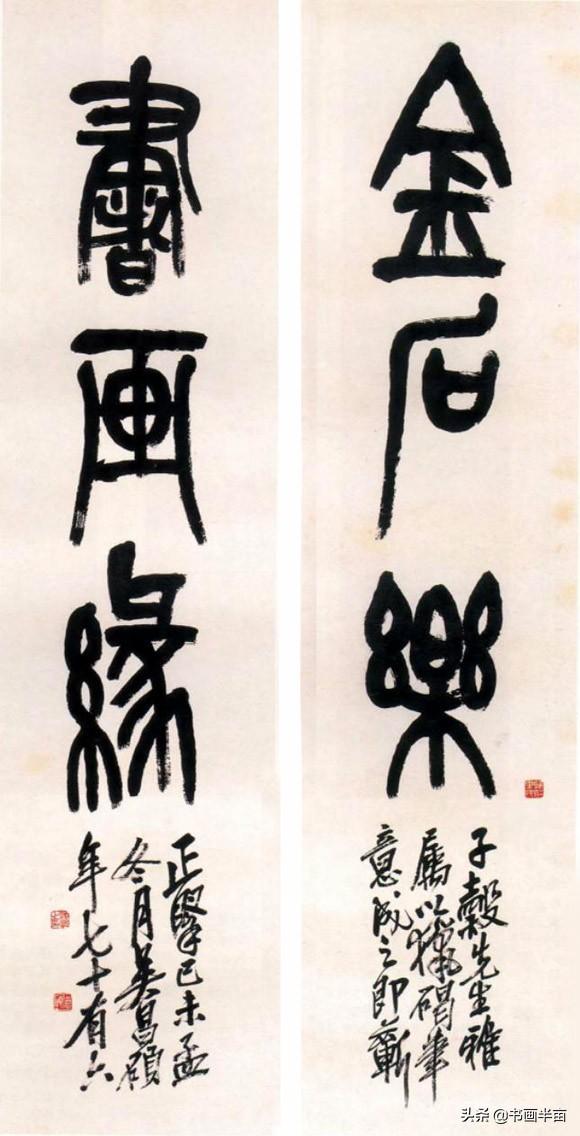 金石樂
子穀先生雅
屬以獵碣筆
意成之即蘄
書画緣
正擘己未孟
冬月吳昌碩
年七十有六
头条 @书画半亩